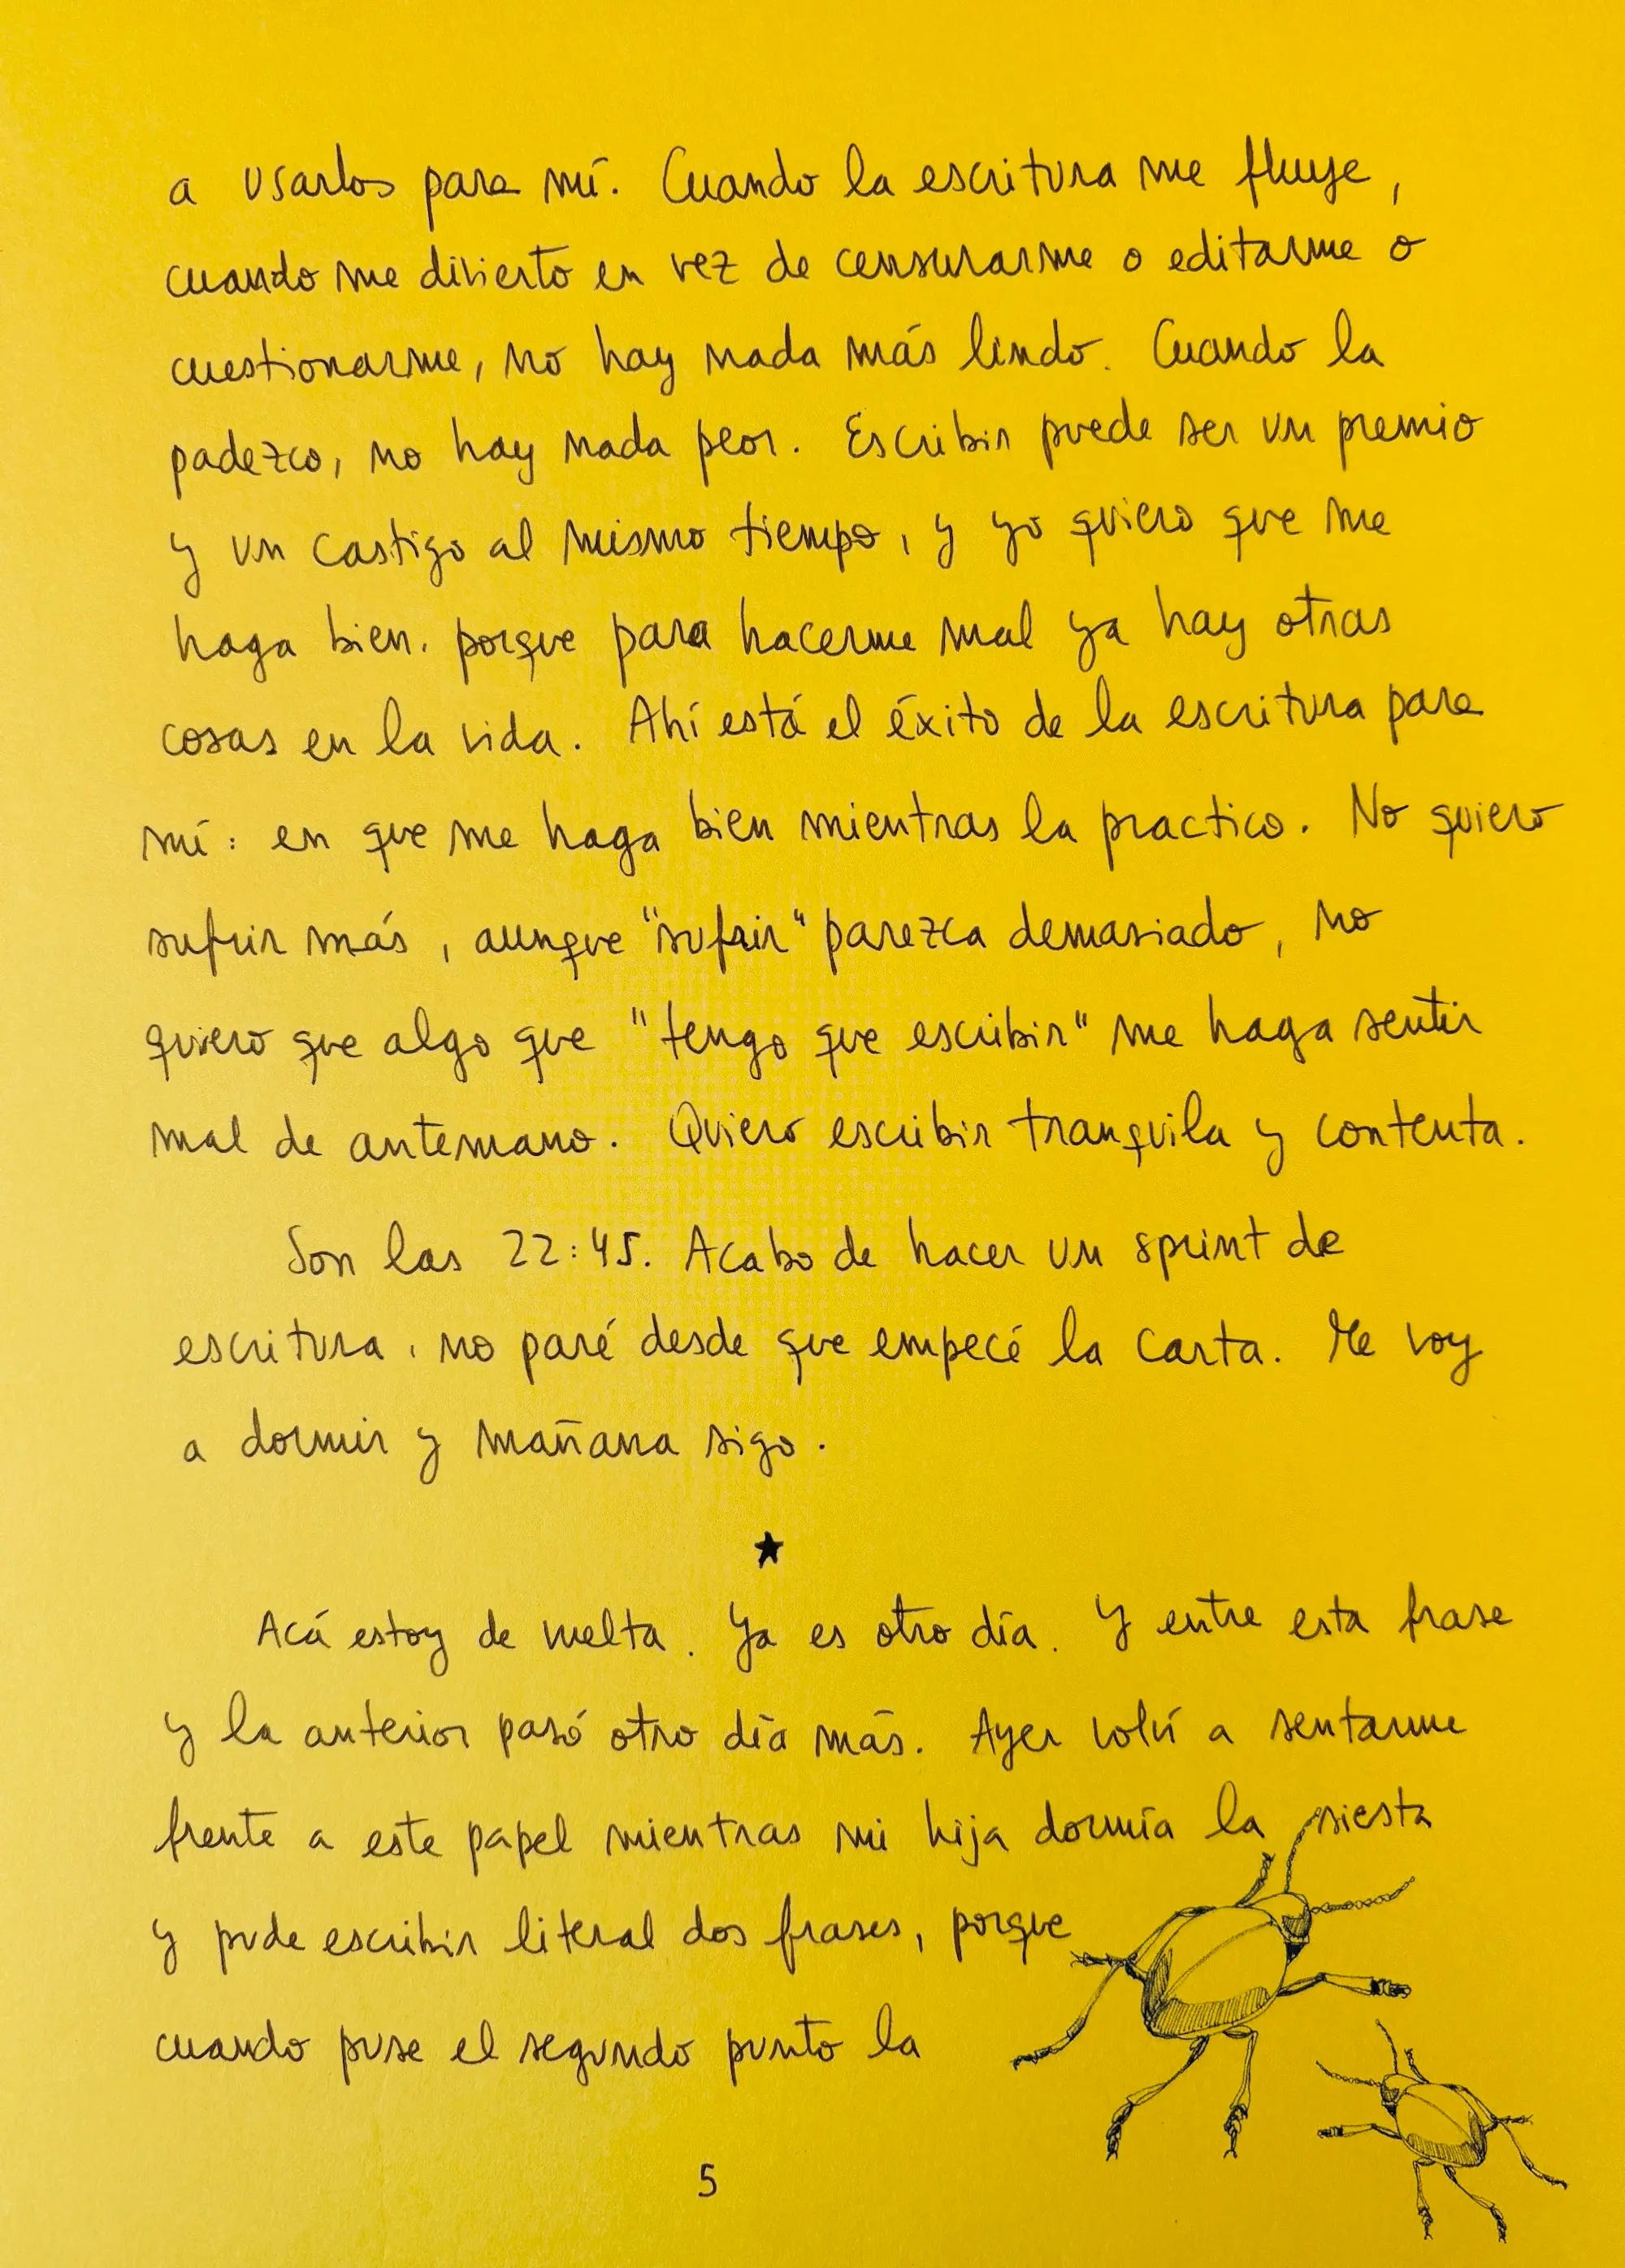 a usarlos para mí. Cuando la escritura me fluye,
cuando me divierto en vez de censurarme o editarme o
cuestionarme, no hay nada más lindo. Cuando la
padezco, no hay nada peor. Escribir puede ser un premio
y un castigo al mismo tiempo, y yo quiero que me
haga bien. porque para hacerme mal ya hay otras
cosas en la vida. Ahí está el éxito de la escritura para
mí: en que me haga bien mientras la practico. No quiero
sufrir más, aunque "sufrir" parezca demasiado, no
quiero que algo que "tengo que escribir" me haga sentir
mal de antemano. Quiero escribir tranquila y contenta.
Son las 22:45. Acabo de hacer un sprint de
escritura, no paré desde que empecé la carta. Me voy
a dormir y mañana sigo.
★
Acá estoy de vuelta. Ya es otro día. Y entre esta frase
y la anterior pasó otro día más. Ayer volví a sentarme
frente a este papel mientras mi hija dormía la siesta
y pude escribir literal dos frases, porque
cuando puse el segundo punto la
5